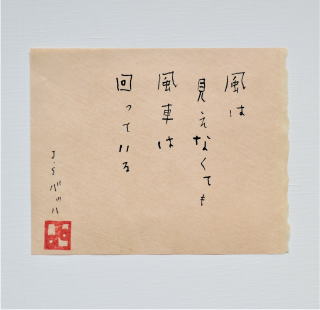 風は
見えなくても
風車は
回っている
J・S バッハ